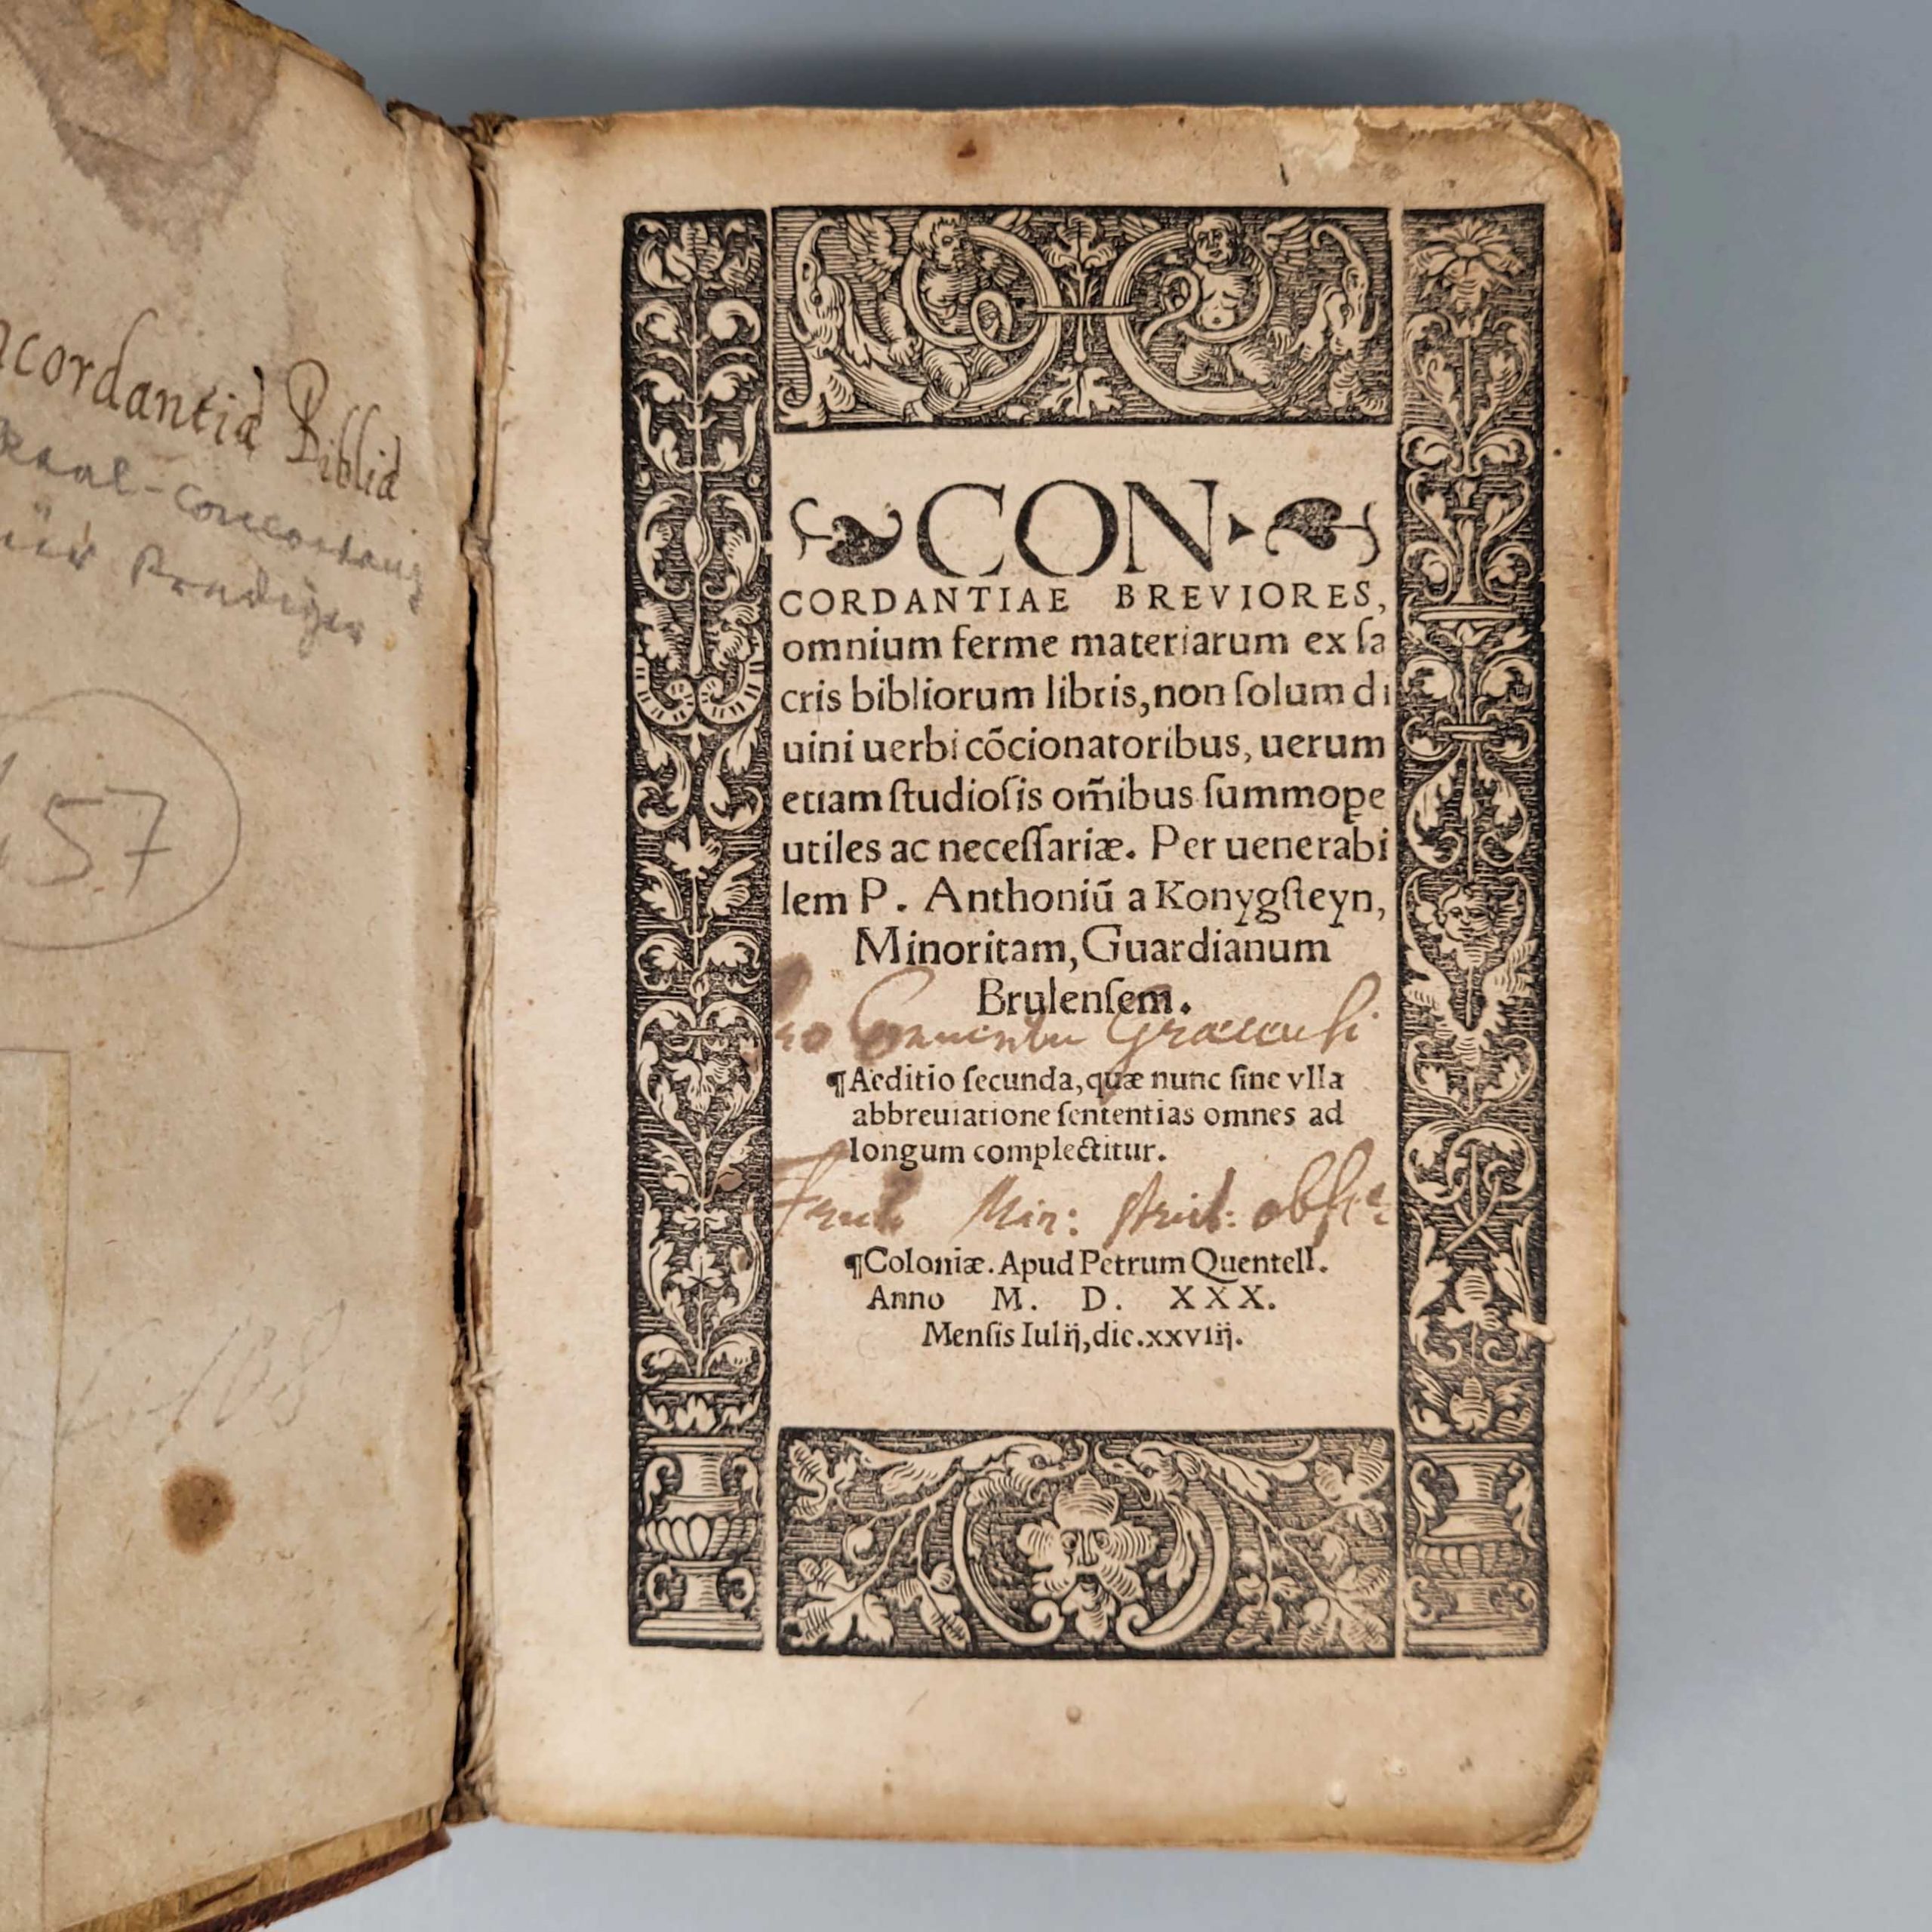 Concordantia Biblia
Real-Concordanz
für Prediger
157
108
CON
CORDANTIAE BREVIORES,
omnium ferme materiarum ex ſa
cris bibliorum libris, non ſolum di
uini uerbi cõcionatoribus, uerum
etiam ſtudioſis om̃ibus ſummope
utiles ac neceſſariæ. Per uenerabi
lem P. Anthoniũ a Konygſteyn,
Minoritam, Guardianum
Brulenſem.
Pro Conuentu Graecensi
¶Aeditio ſecunda, quæ nunc ſine vlla
abbreuiatione ſententias omnes ad
longum complectitur.
Min: Strict: obſ
¶Coloniæ. Apud Petrum Quentell.
Anno M. D. XXX.
Menſis Iulij, die. xxviij.